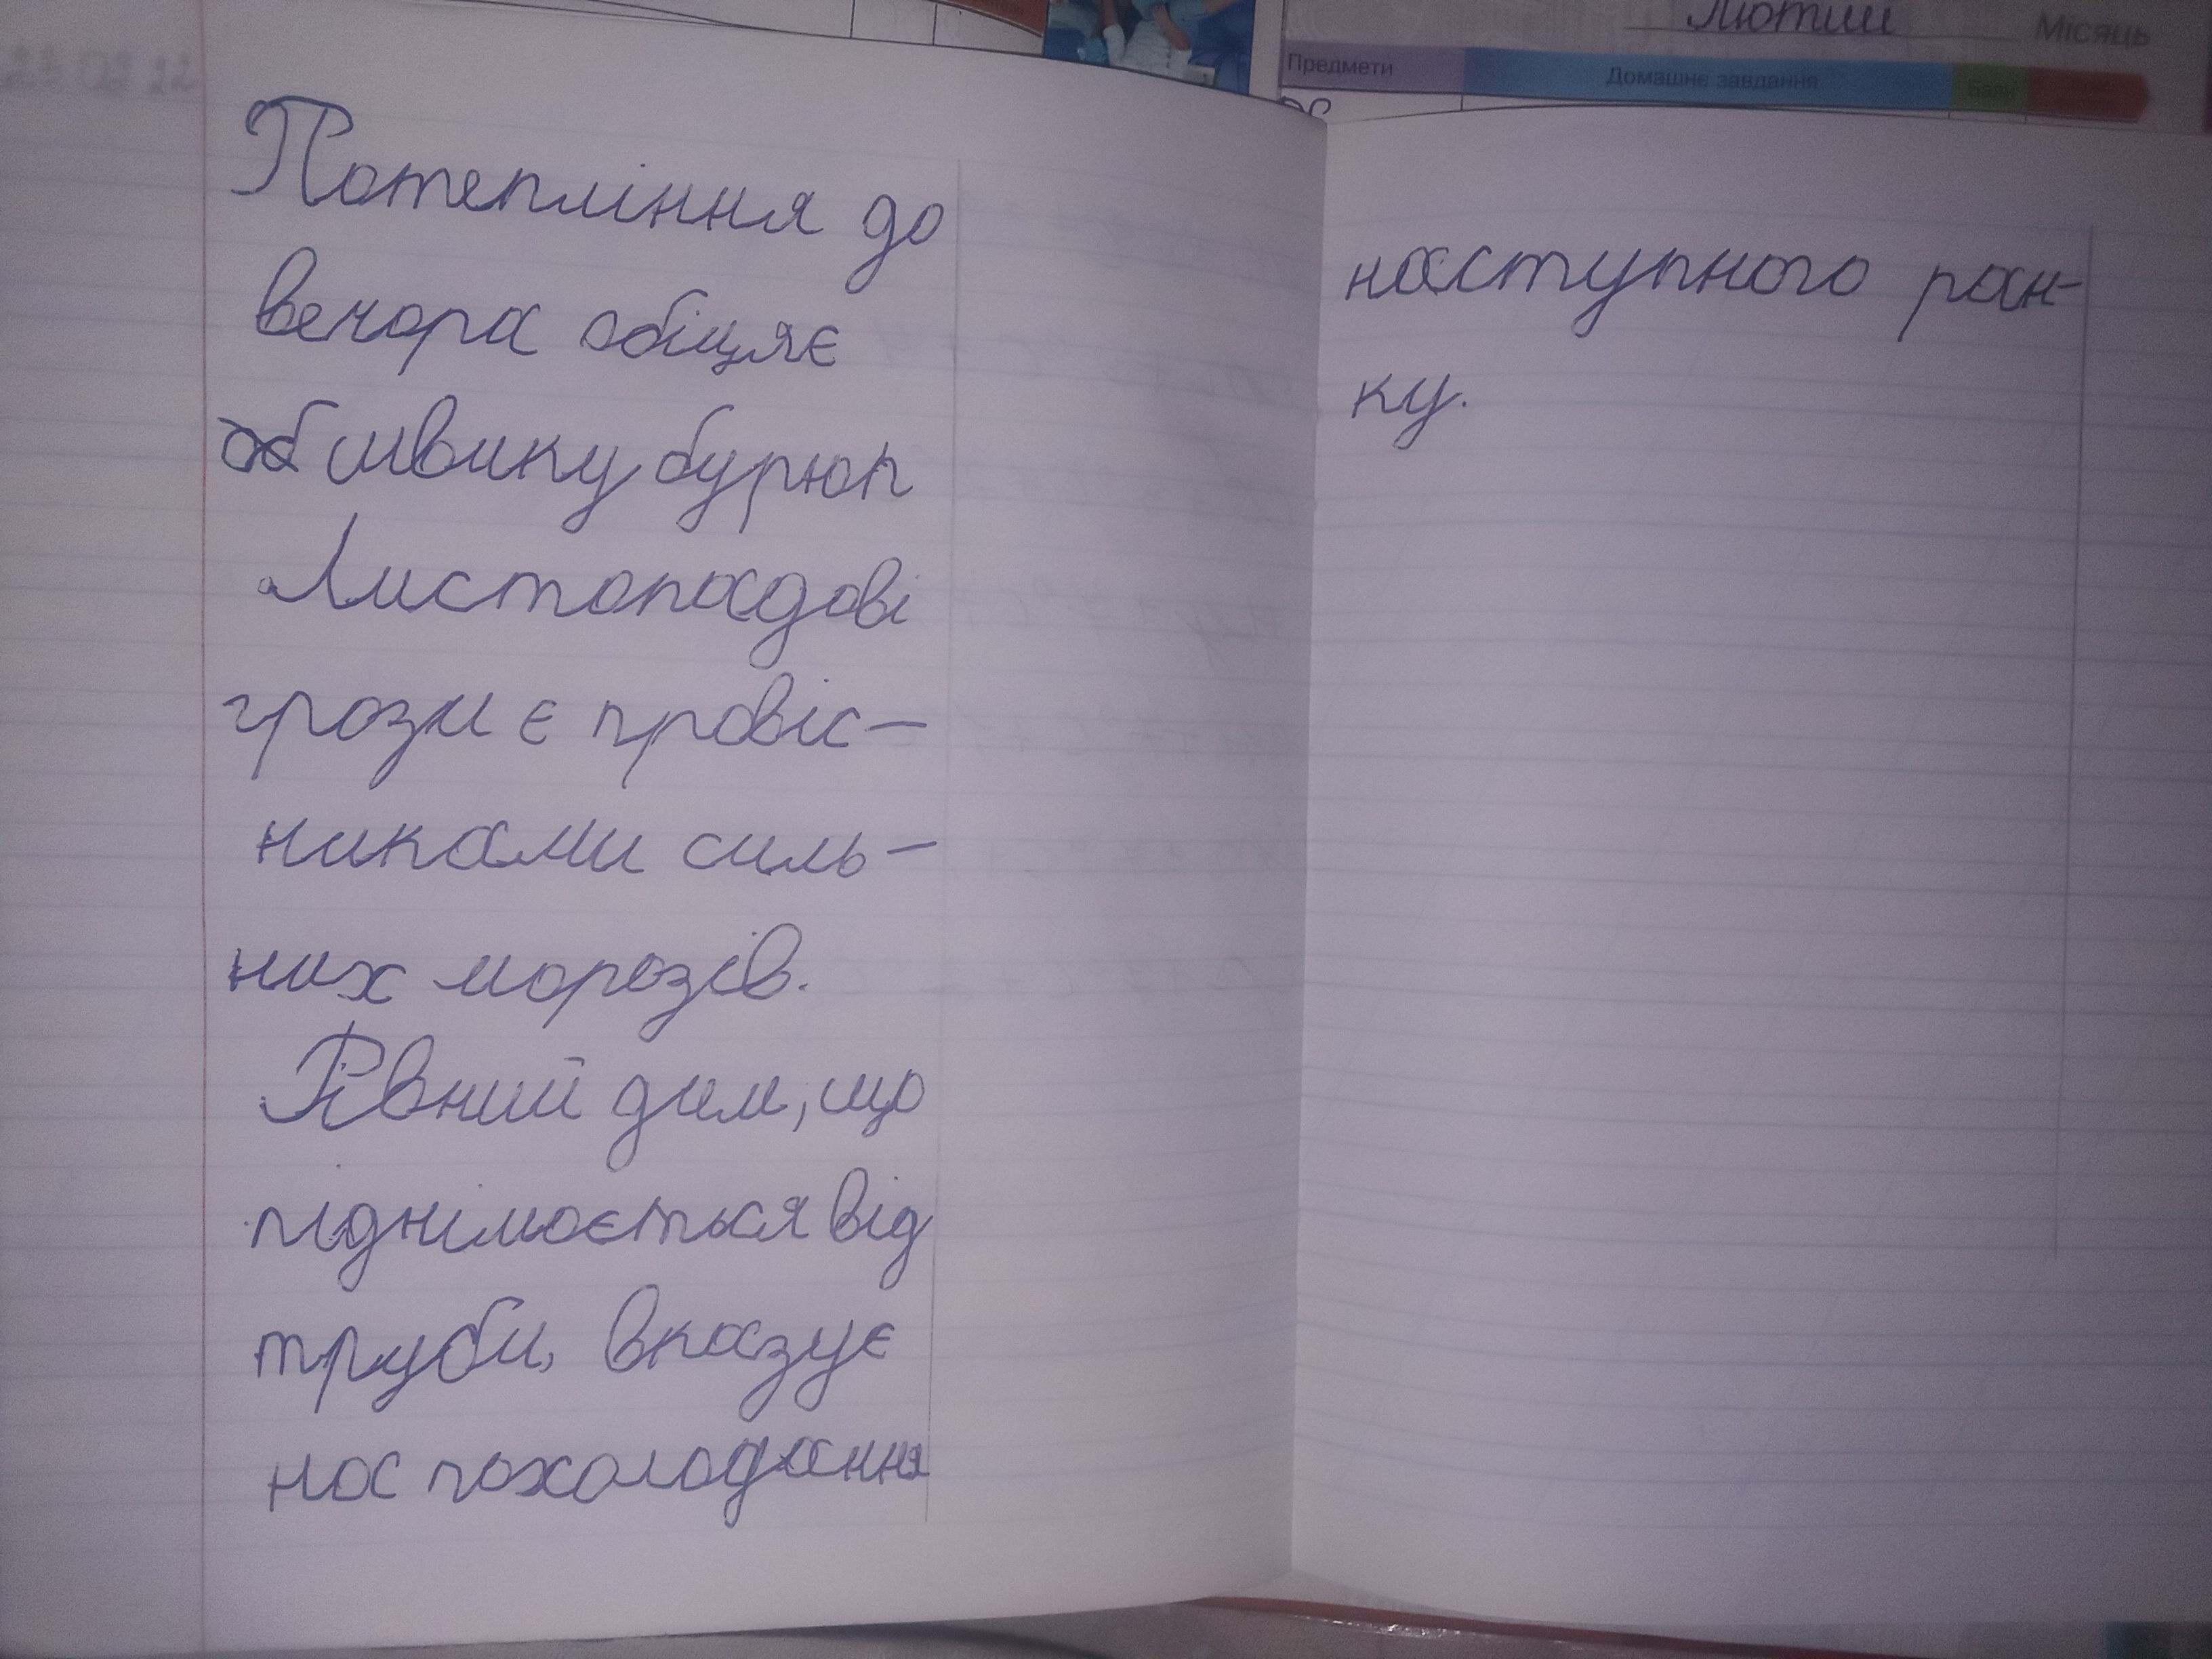 Лютий Місяць
Предмети Домашнє завдання Бали
Потепління до
вечора обіцяє
швику бурюп
Листопадові
грози є провіс-
никами силь-
них морозів.
Рівний дим, що
піднімається від
труби, вказує
нас похолодання
наступного ран-
ку.